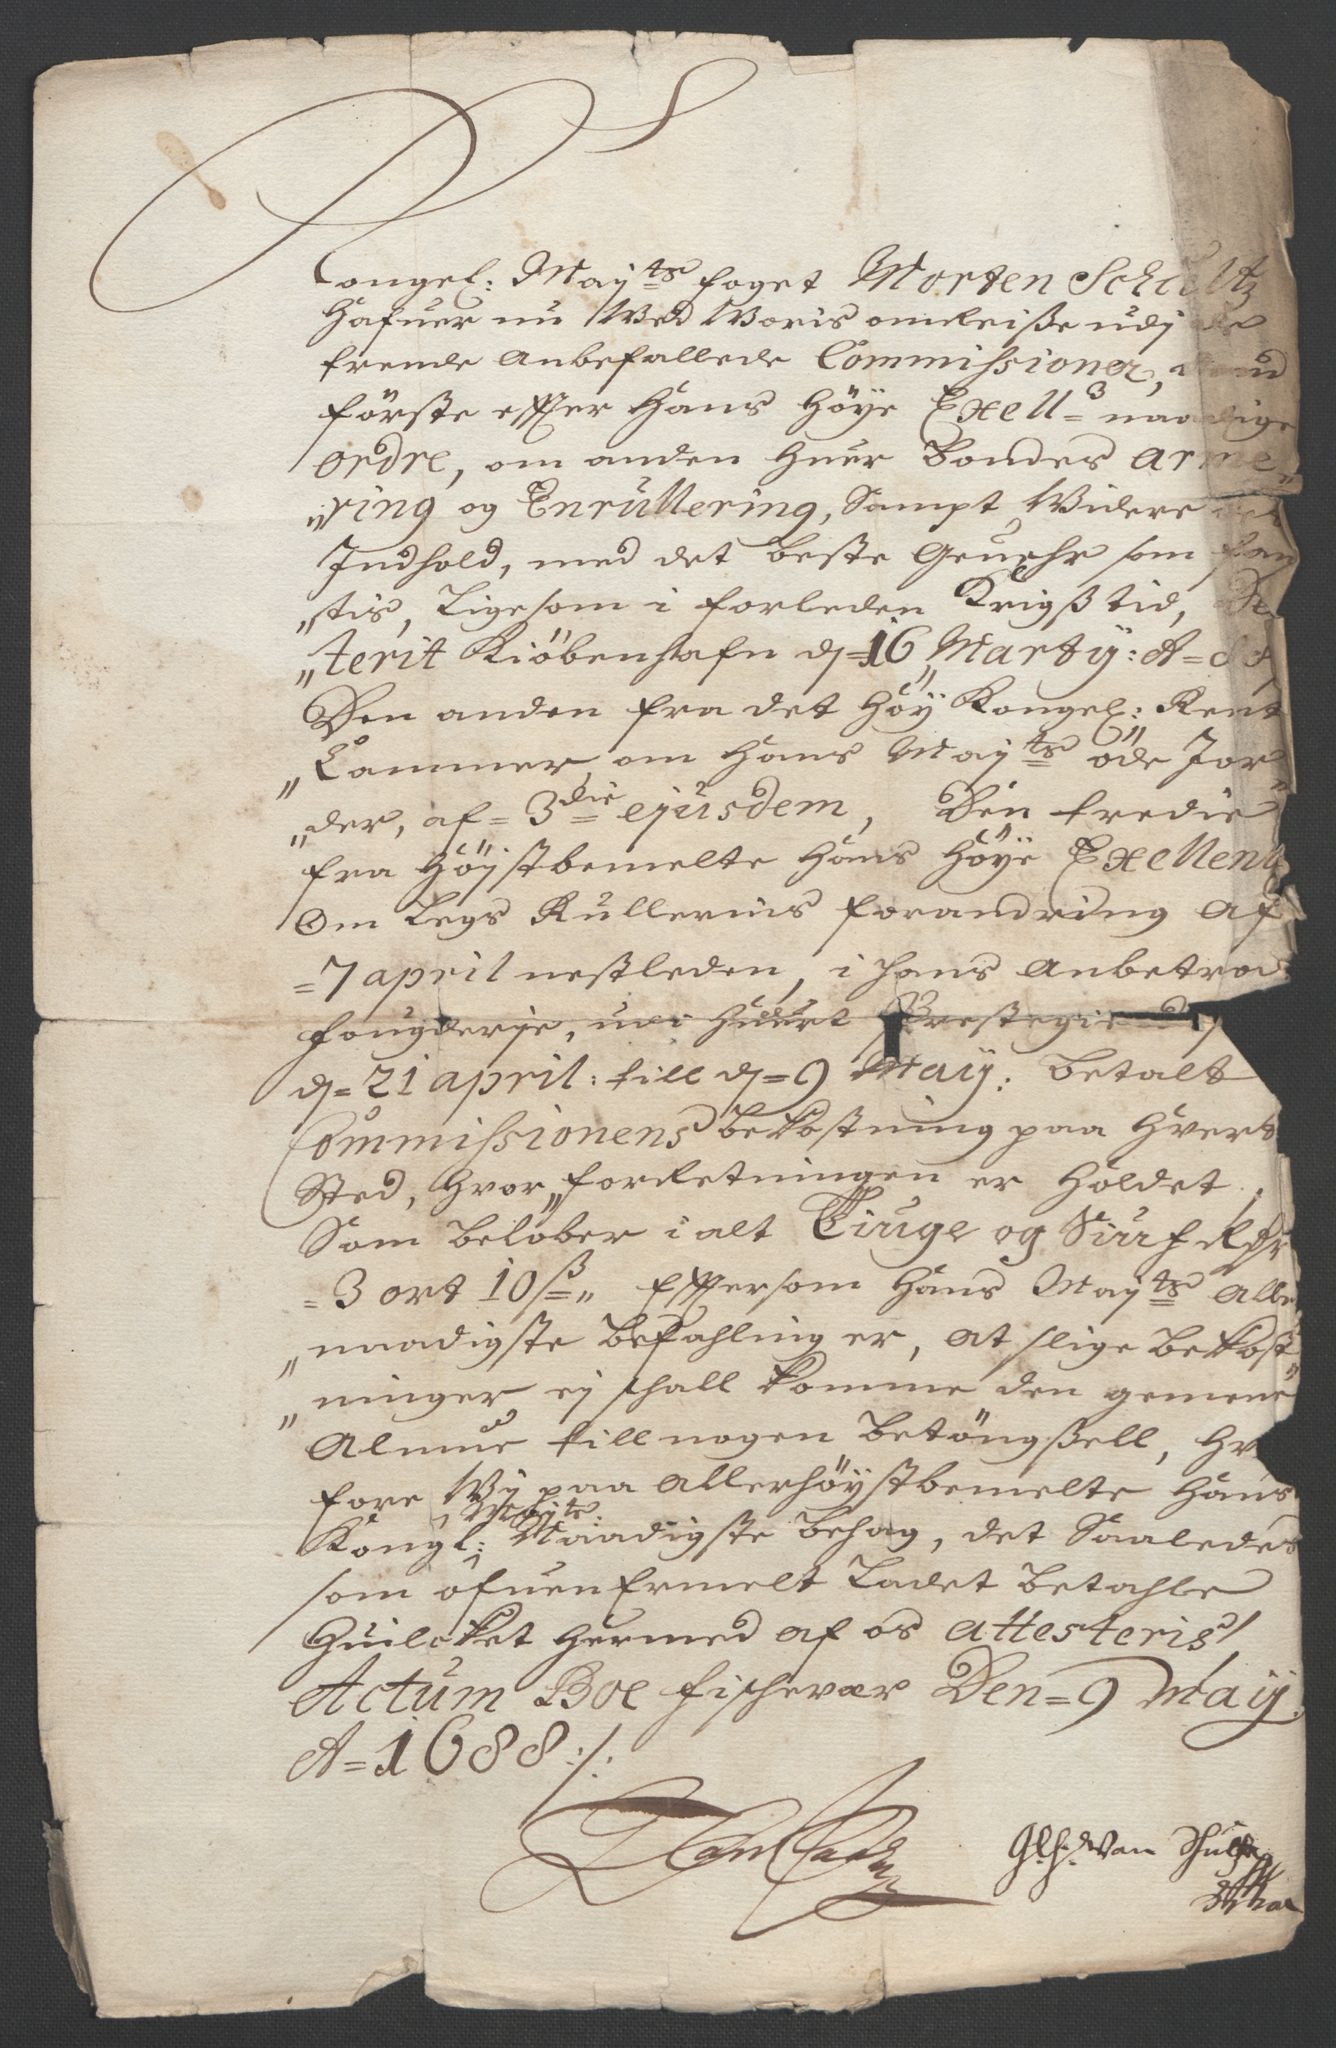 Kongel: May:ts foget Morten Schultz
Hafuer nu Wed Woris omreiße udj de
trende Anbefallede Commissioner, dend
förste effter Hans Höye Excell: naadige
ordre, om anden huer bondes arme„
„ring og Enrullering, Sampt Widere des
Indhold, med det beste Geuehr som fan
„stis, Ligesom i forleden Krigß tid, Da
„terit Kiöbenhafn d= 16 Marty: A= 88,
Den anden fra det Höy Kongel: Rent
„Cammer om Hans May:ts öde Jor„
„der, af= 3die ejusdem, Den tredie
fra Höjstbemelte Hans Höye Excellentz
Om Legs Rullernis forandring af
= 7 april nestleden, i hans Anbetroe
fougderje, udi Huert Prestegield
d= 21 april: till d= 9 Maij: betalt
Commissionens bekostning paa Hvert
Sted, Hvor forretningen er Holdet,
Som belöber i alt Tiuge og Siuf Rdr
= 3 ort 10 ß „ Effersom Hans May:ts Aller
„naadigste befahling er, at slige bekost„
„ninger ej schall komme den gemene
Almue till nogen betöngßell, Hv
fore Wij paa Allerhöystbemelte Hans
Kongl: Mayts: Naadigste behag, det Saaledes
som ofuenErmelt Ladet betahle
Huilcket Hermed af os attesteris/
Actum Boe fischevær Den= 9 Maij.
A= 1688 ./.
van Schult